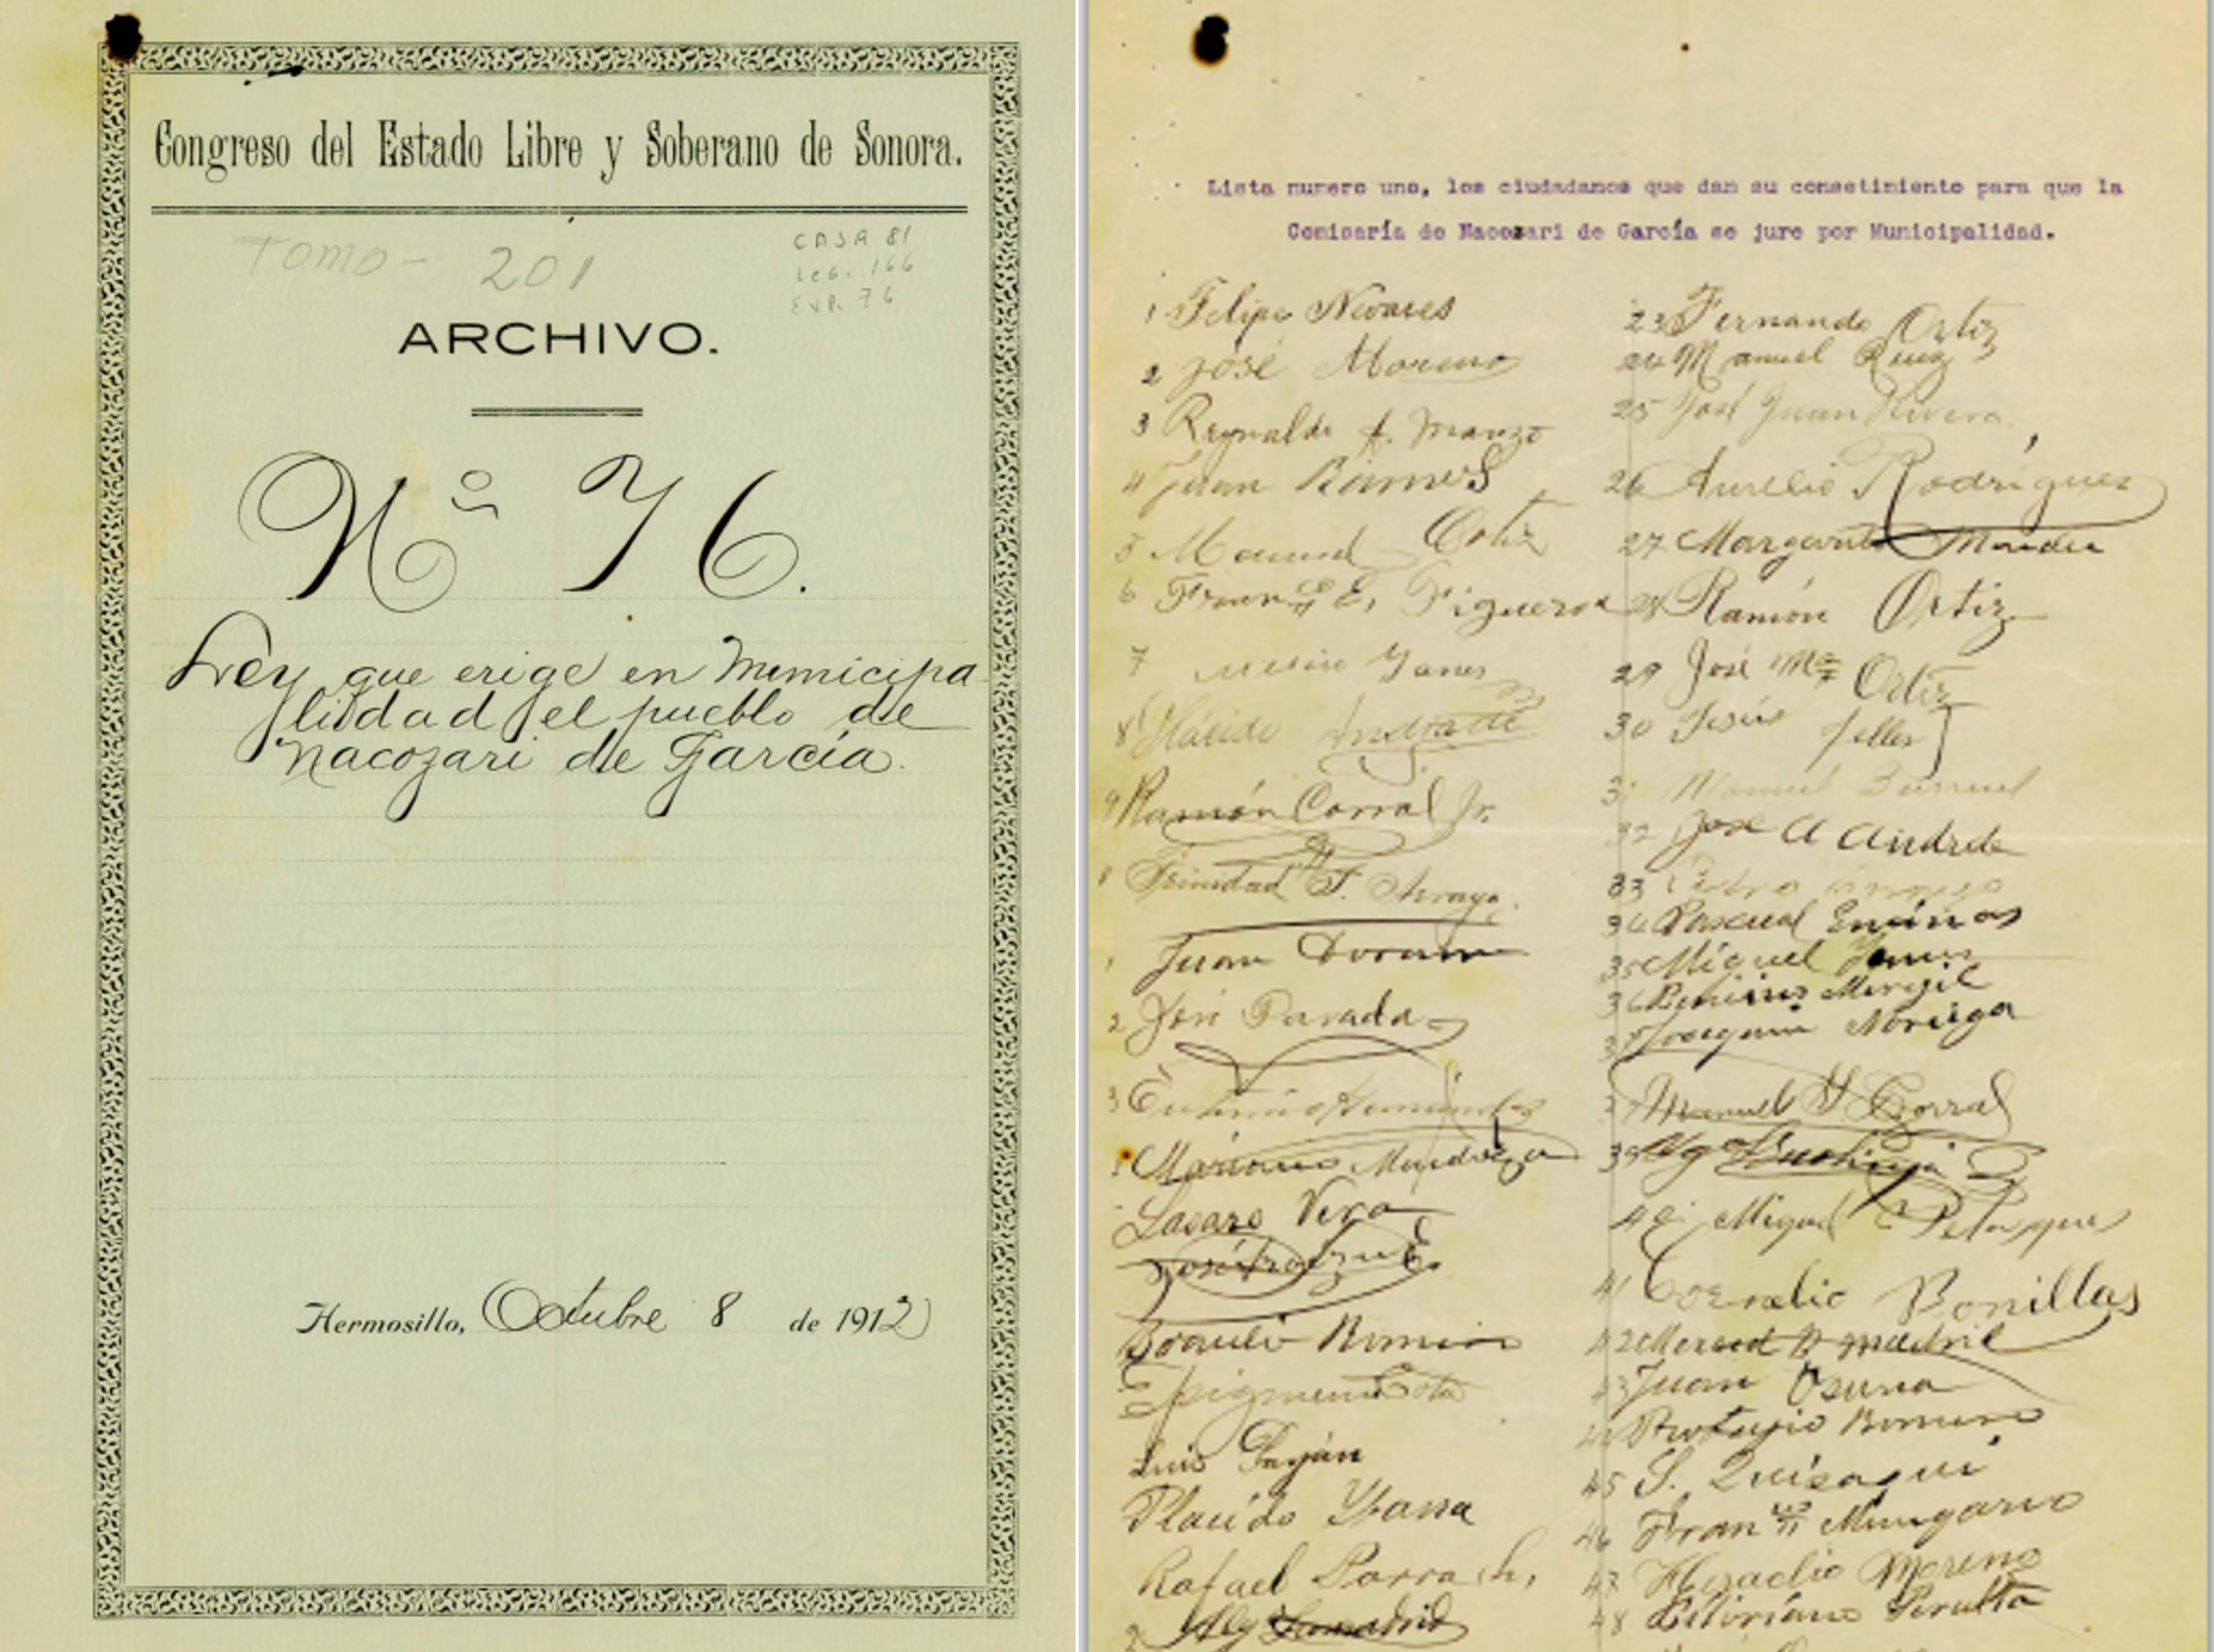 Congreso del Estado Libre y Soberano de Sonora.
Tomo - 201
CASA 81
Leg. 166
EXP. 76
ARCHIVO.
Nº 76.
Ley que erige en Municipa
lidad el pueblo de
Nacozari de García.
Hermosillo, Octubre 8 de 1912
Lista numero uno, los ciudadanos que dan su consetimiento para que la
Comisaría de Nacozari de García se jure por Municipalidad.
1 Felipe Nevares
2 José Moreno
3 Reynaldo A. Manzo
4 Juan Ramos
5 Manuel Ortiz
6 Franco E. Figueroa
7 Yanes
8 Plácido Andrade
9 Ramón Corral Jr.
Trinidad F. Arrayo.
Juan Doram
2 José Parada
3
Mariano Mendoza
Lasaro Vera
Braulio Romero
Epigmenio Sota
Luis Payán
Placido Ybarra
Rafael Parra h,
2
23 Fernando Ortiz
24 Manuel Ruiz
25 José Juan Rivera
26 Aurelio Rodríguez
27 Margarito Mendez
28 Ramón Ortiz
29 José Ma Ortiz
30 Jesús Teller
31 Manuel
32 José A Andrade
33 Pedro
34 Pascual Encinas
35 Miguel
36 Benino Merigil
37 Joaquin Noriega
Manuel Y Corral
39
40 Miguel
41 Cornelio Bonillas
42 Merced B Madril
43 Juan Osuna
44 Protasio Romero
45 S. Quisaqui
46 Franco Mungarro
47 Heraclio Moreno
48 Peralta